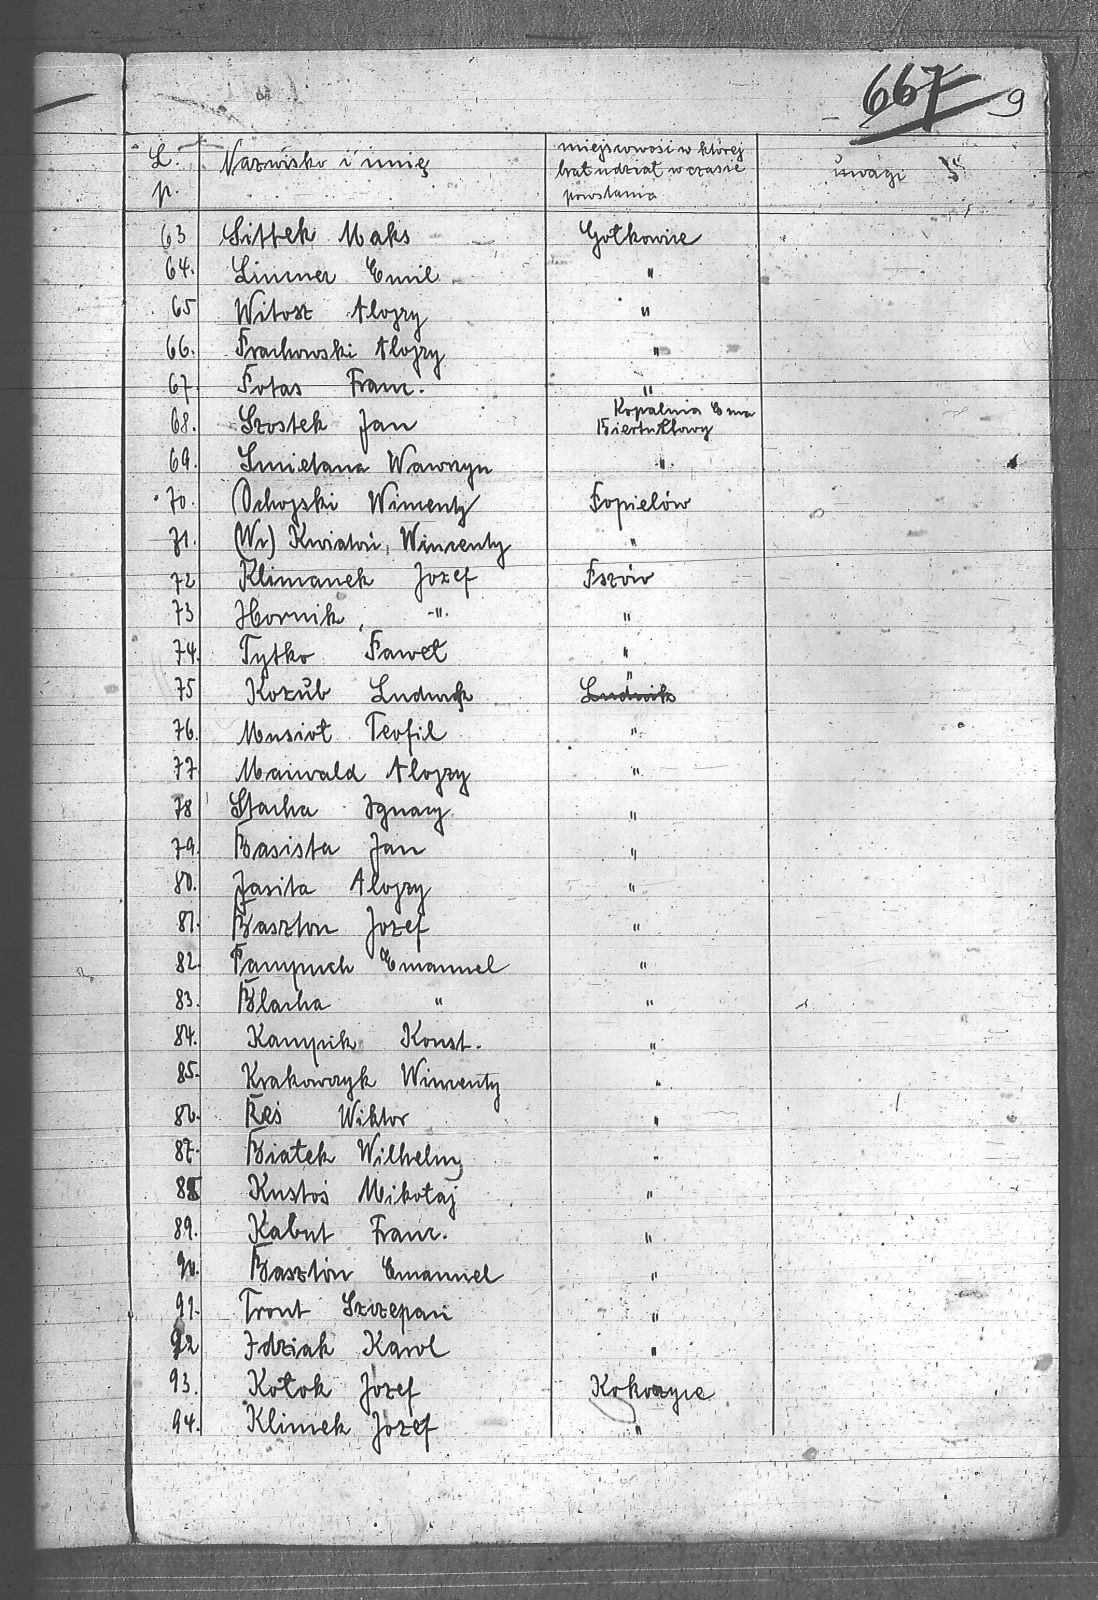 667 9
L. p. Nazwisko i imię miejscowość w której brał udział w czasie powstania uwagi
63 Sittek Maks Gołkowice
64. Linner Emil "
65 Witosz Alojzy "
66. Prachowski Alojzy "
67. Potas Franc. "
68. Szostek Jan Kopalnia Ema Biertułtowy
69. Smietana Wawrzyn "
70. Ochojski Wincenty Popielów
71. (Wr) Kwiatoń, Wincenty "
72 Klimanek Jozef Pszów
73 Hornik, -"- "
74. Tytko Paweł "
75 Kozub Ludwik Ludwik "
76. Musioł Teofil "
77 Maiwald Alojzy "
78 Stacha Ignacy "
79. Basista Jan "
80. Jasita Alojzy "
81. Baszton Jozef "
82 Pampuch Emanuel "
83. Blacha " "
84. Kampik Konst. "
85. Krakowczyk Wincenty "
86. Reś Wiktor "
87. Białek Wilhelm "
88 Kustoś Mikołaj "
89. Kabut Franc. "
90. Basztón Emanuel "
91. Tront Szczepan "
92 Idziak Karol "
93. Kołok Jozef Kokoszyce
94. Klimek Jozef "